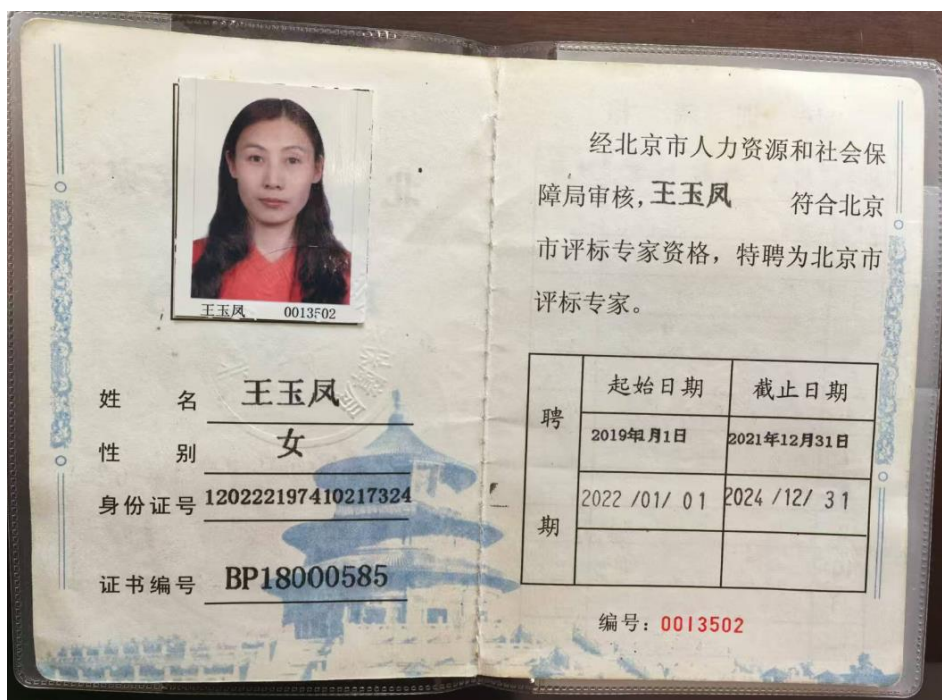 王玉凤 0013502
姓 名 王玉凤
性 别 女
身份证号 120222197410217324
证书编号 BP18000585
经北京市人力资源和社会保
障局审核,王玉凤 符合北京
市评标专家资格，特聘为北京市
评标专家。
聘期
起始日期 截止日期
2019年1月1日 2021年12月31日
2022 /01/ 01 2024 /12/ 31
编号：0013502